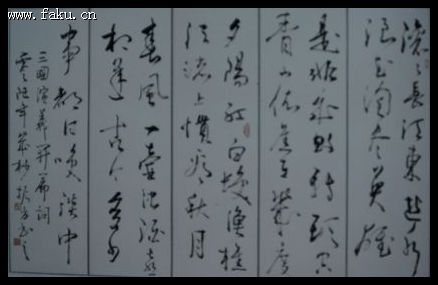 www.faku.cn
滚々長江東逝水
浪花淘尽英雄
是非成败转头空
青山依旧在几度
夕陽红白髮渔樵
江渚上惯看秋月
春风一壶浊酒喜
相逢古今多少
事都付笑谈中
三國演義開篇词